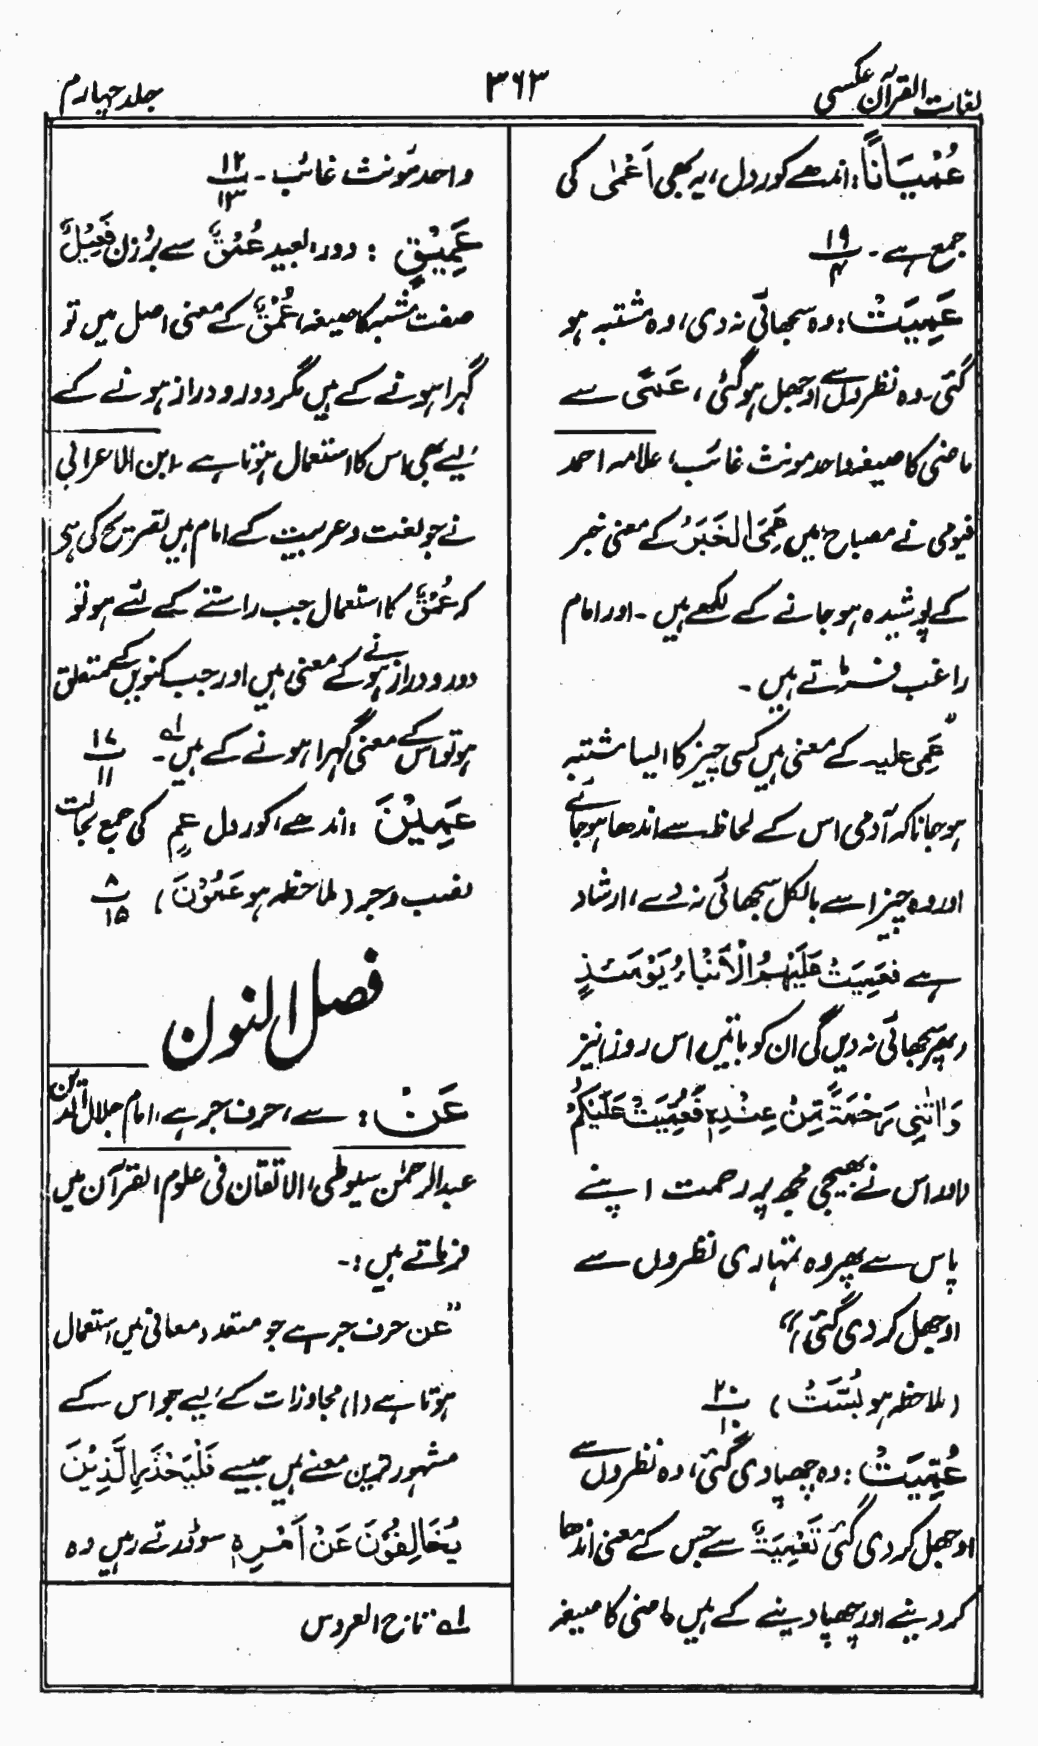 لغات القرآن عکسی
۳۶۳
جلد چہارم
عُمْيَانًا: اندھے کور دل، یہ بھی اَعْمٰی کی
جمع ہے۔ ۱۹/۴
عَمِيَتْ: وہ سجھائی نہ دی، وہ مشتبہ ہو
گئی۔ وہ نظروں سے اوجھل ہو گئی، عَمًى سے
ماضی کا صیغہ واحد مونث غائب، علامہ احمد
فیومی نے مصباح میں عَمِيَ الْخَبَرُ کے معنی خبر
کے پوشیدہ ہو جانے کے لکھے ہیں۔ اور امام
راغب فرماتے ہیں۔
"عَمِیَ علیہ کے معنی ہیں کسی چیز کا ایسا مشتبہ
ہو جانا کہ آدمی اس کے لحاظ سے اندھا ہو جائے
اور وہ چیز اسے بالکل سجھائی نہ دے، ارشاد
ہے فَعَمِيَتْ عَلَيْهِمُ الْأَنْبَاءُ يَوْمَئِذٍ
(پھر سجھائی نہ دیں گی ان کو باتیں اس روز) نیز
وَاٰتٰنِي رَحْمَةً مِّنْ عِنْدِهٖ فَعُمِّيَتْ عَلَيْكُمْ
(اور اس نے بھیجی مجھ پر رحمت اپنے
پاس سے پھر وہ تمہاری نظروں سے
اوجھل کر دی گئی)"
(ملاحظہ ہو بُسَّتْ) ۲۰/۱۰
عُمِّيَتْ: وہ چھپا دی گئی، وہ نظروں سے
اوجھل کر دی گئی تَعْمِيَةٌ سے جس کے معنی اندھا
کر دینے اور چھپا دینے کے ہیں ماضی کا صیغہ
واحد مونث غائب۔ ۱۲/۱۳
عَمِيْقٍ: دور، بعید عُمْقٌ سے بروزن فَعِيْلٌ
صفت مشبہ کا صیغہ، عُمْقٌ کے معنی اصل میں تو
گہرا ہونے کے ہیں مگر دور و دراز ہونے کے
لیے بھی اس کا استعمال ہوتا ہے، ابن الاعرابی
نے جو لغت و عربیت کے امام ہیں تصریح کی ہی
کہ عُمْقٌ کا استعمال جب راستے کے لئے ہو تو
دور و دراز ہونے کے معنی ہیں اور جب کنویں کے متعلق
ہو تو اس کے معنی گہرا ہونے کے ہیں۔ لہ ۱۷/۱۱
عَمِيْنَ: اندھے، کور دل عَمٍ کی جمع بحالت
نصب و جر (ملاحظہ ہو عَمُوْنَ) ۸/۱۵
فصل النون
عَنْ: سے، حرف جر ہے، امام جلال الدین
عبدالرحمٰن سیوطی، الاتقان فی علوم القرآن میں
فرماتے ہیں:۔
"عن حرف جر ہے جو متعدد معانی میں استعمال
ہوتا ہے (۱) مجاوزات کے لیے جو اس کے
مشہور ترین معنے ہیں جیسے فَلْيَحْذَرِ الَّذِيْنَ
يُخَالِفُوْنَ عَنْ اَمْرِهٖ سو ڈرتے رہیں وہ
لہ تاج العروس